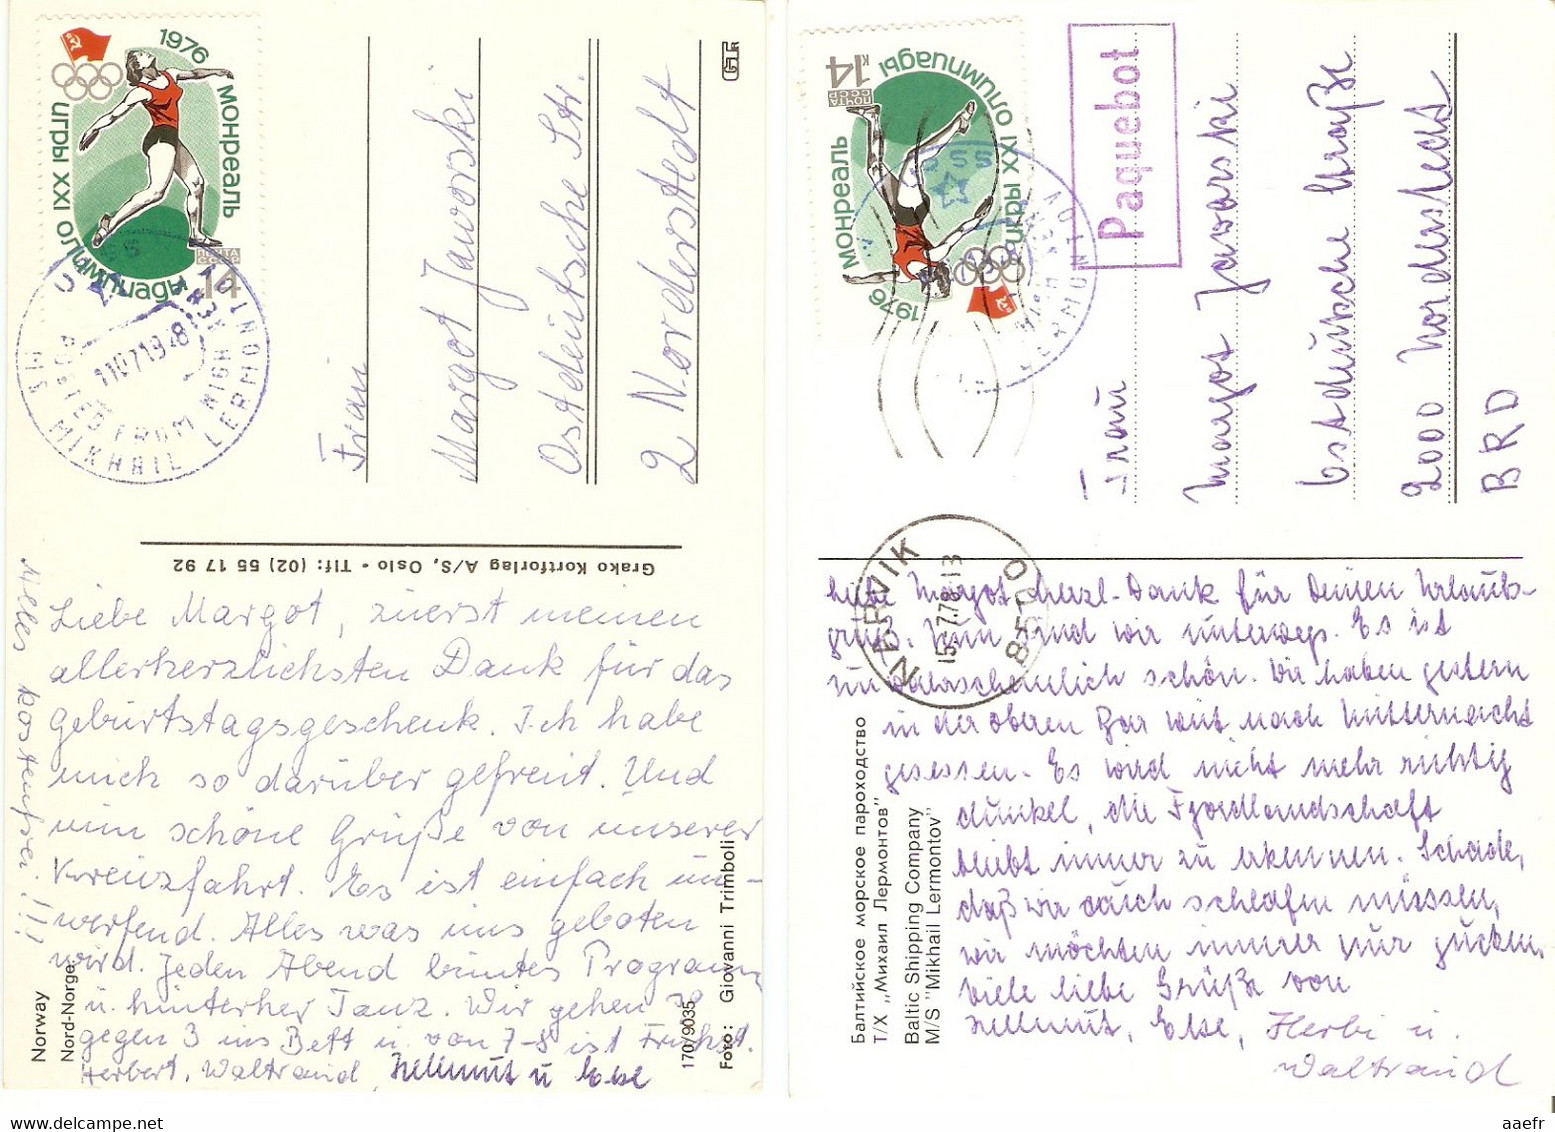 1976
МОНРЕАЛЬ
ИГРЫ XXI ОЛИМПИАДЫ
ПОЧТА
СССР
14
POSTED FROM HIGH SEAS
11071978
MS MIKHAIL LERMONTOV
Frau
Margot Jaworski
Ostdeutsche Str.
2 Norderstedt
Grako Kortforlag A/S, Oslo - Tlf: (02) 55 17 92
Alles kostenfrei!!!
Liebe Margot, zuerst meinen
allerherzlichsten Dank für das
Geburtstagsgeschenk. Ich habe
mich so darüber gefreut. Und
nun schöne Grüße von unserer
Kreuzfahrt. Es ist einfach um-
werfend. Alles was uns geboten
wird. Jeden Abend buntes Programm
u. hinterher Tanz. Wir gehen so
gegen 3 ins Bett u. von 7-8 ist Frühst.
Herbert, Waltraud, Hellmut u Else
Norway
Nord-Norge
170/9035
Foto: Giovanni Trimboli
1976
МОНРЕАЛЬ
ИГРЫ XXI ОЛИМПИАДЫ
ПОЧТА
СССР
14 К
Paquebot
Frau
Margot Jaworski
Ostdeutsche Straße
2000 Norderstedt
BRD
NARVIK
15-7-78 13
8501
Liebe Margot, herzl. Dank für Deinen Urlaubs-
gruß. Nun sind wir unterwegs. Es ist
unwahrscheinlich schön. Wir haben gestern
in der oberen Bar weit nach Mitternacht
gesessen. Es wird nicht mehr richtig
dunkel, die Fjordlandschaft
bleibt immer zu erkennen. Schade,
daß wir auch schlafen müssen,
wir möchten immer nur gucken.
Viele liebe Grüße von
Hellmut, Else, Herbi u.
Waltraud
Балтийское морское пароходство
Т/Х „Михаил Лермонтов"
Baltic Shipping Company
M/S "Mikhail Lermontov"
www.delcampe.net
aaefr